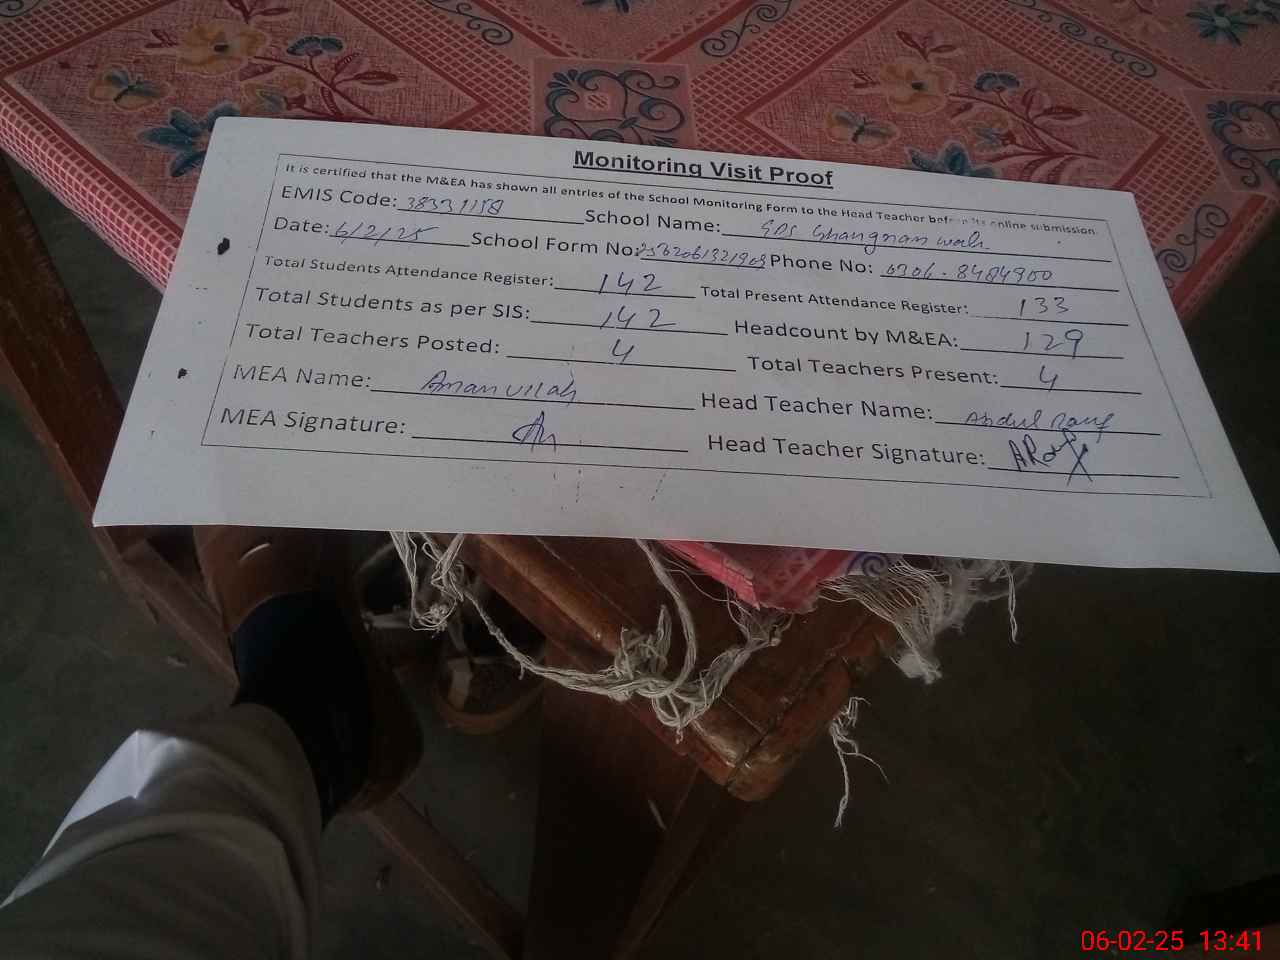 Monitoring Visit Proof
It is certified that the M&EA has shown all entries of the School Monitoring Form to the Head Teacher before its online submission.
EMIS Code: 38331158 School Name: GPS
Date: 6/2/25 School Form No: Phone No: 0306-8484900
Total Students Attendance Register: 142 Total Present Attendance Register: 133
Total Students as per SIS: 142 Headcount by M&EA: 129
Total Teachers Posted: 4 Total Teachers Present: 4
MEA Name: Aman ullah Head Teacher Name: Abdul Rauf
MEA Signature: Head Teacher Signature:
06-02-25 13:41